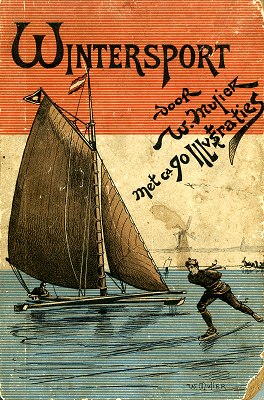 WINTERSPORT
door
W. Mulier
met ca 90 Illustraties
W. MULIER